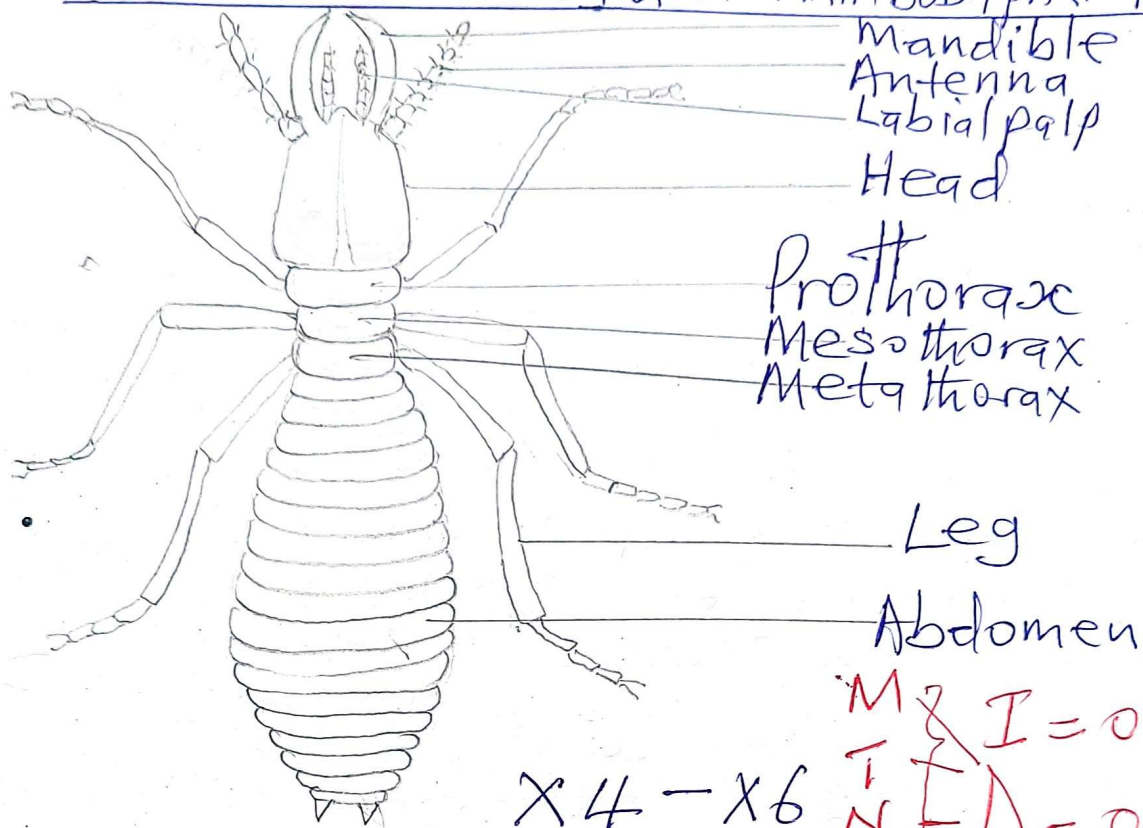 Mandible
Antenna
Labial palp
Head
Prothorax
Mesothorax
Metathorax
Leg
Abdomen
X4 - X6
M
I = 0
T
N
= 0